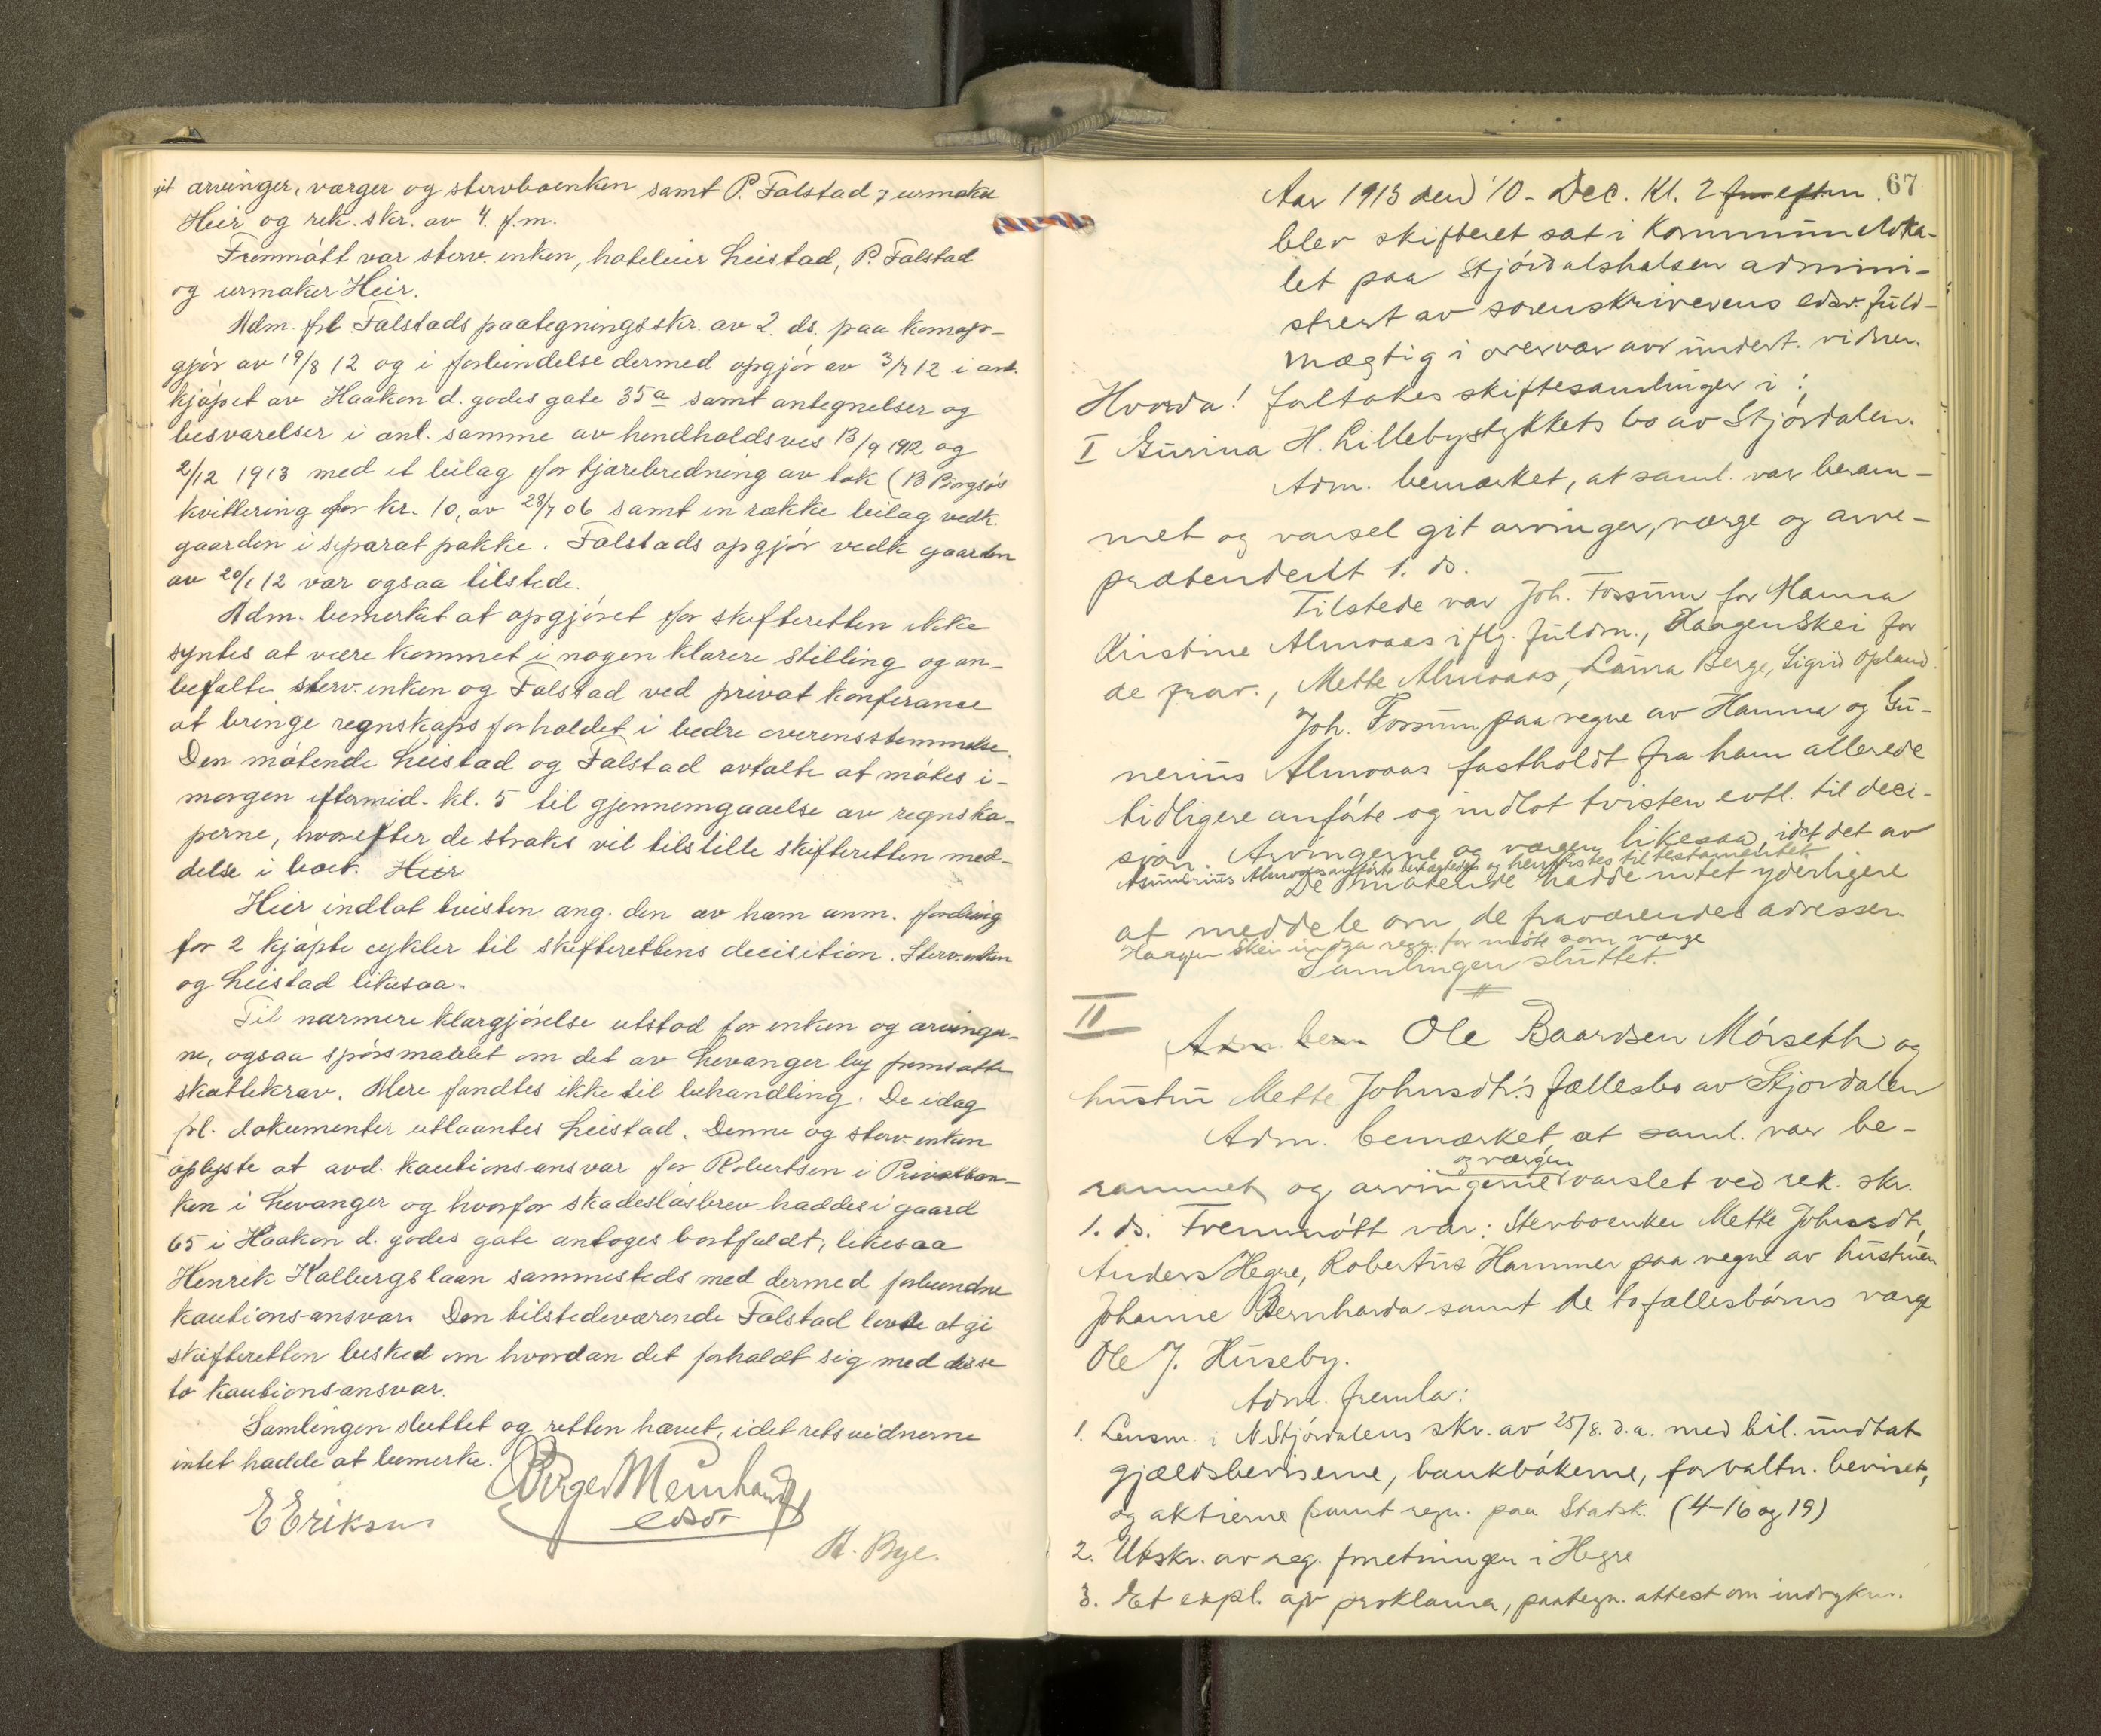 git arvinger, værger og stervboenken samt P. Falstad, urmaker
Heir og rek. skr. av 4. f.m.
Fremmött var sterv. enken, hoteleier Leistad, P. Falstad
og urmaker Heir.
Adm. frl. Falstads paategningsskr. av 2. ds. paa
gjör av 19/8 12 og i forbindelse dermed opgjör av 3/7 12 i anl.
kjöpet av Haakon d. godes gate 35a samt antegnelser og
besvarelser i anl. samme av hendholdsves 13/9 1912 og
2/12 1913 med et bilag for tjærebredning av tak (B Borgsös
kvittering for kr. 10, av 28/7 06 samt en række bilag vedk.
gaarden i separat pakke. Falstads opgjör vedk gaarden
av 20/1 12 var ogsaa tilstede.
Adm. bemerket at opgjöret for skifteretten ikke
syntes at være kommet i nogen klarere stilling og an-
befalte sterv. enken og Falstad ved privat konferanse
at bringe regnskapsforholdet i bedre overensstemmelse.
Den mötende Leistad og Falstad avtalte at mötes i-
morgen eftermid. kl. 5 til gjennemgaaelse av regnska-
perne, hvorefter de straks vil tilstille skifteretten med-
delse i boet. Heir
Heir indlot tvisten ang. den av ham anm. fordring
for 2 kjöpte cykler til skifterettens decisition. Sterv. enken
og Leistad likesaa.
Til nærmere klargjörelse utstod for enken og arvinger-
ne, ogsaa spörsmaalet om det av Levanger by fremsatte
skattekrav. Mere fandtes ikke til behandling. De idag
frl. dokumenter utlaantes Leistad. Denne og sterv. enken
oplyste at avd. kautionsansvar for Robertsen i Privatban-
ken i Levanger og hvorfor skadeslösbrev haddes i gaard
65 i Haakon d. godes gate antoges bortfaldt, likesaa
Henrik Halbergs laan sammesteds med dermed forbundne
kautionsansvar. Den tilstedeværende Falstad lovde at gi
skifteretten besked om hvordan det forholdt sig med disse
to kautionsansvar.
Samlingen sluttet og retten hævet, idet retsvidnerne
intet hadde at bemerke.
Birger Meinhardt
edsv
E Eriksen
H. Bye.
67
Aar 1913 den 10. Dec. Kl. 2 fm eftm.
blev skifteret sat i Kommuneloka-
let paa Stjördalshalsen admini-
strert av sorenskriverens edsv. fuld-
mægtig i overvær av undert. vidner.
Hvorda! foltokes skiftesamlinger i:
I Gurina H. Lillebystykkets bo av Stjördalen.
Adm. bemærket, at saml. var beram-
met og varsel git arvinger, værge og arve-
prætendent 1. ds.
Tilstede var Joh. Fossum for Hanna
Kristine Almoaas iflg. fuldm., Haagen Skei for
de frav., Mette Almoaas, Laura Berge, Sigrid Opland.
Joh. Fossum paa vegne av Hanna og Gu-
nerius Almoaas fastholdt fra ham allerede
tidligere anförte og indlot tvisten evtl. til deci-
sion. Arvingerne og værgen likesaa, idet det av
Gunerius Almoaas anförte benægtedes og henvistes til testamentet
De mötende hadde intet yderligere
at meddele om de fraværendes adresser.
Haagen Skei undga regn. for möte som værge
Samlingen sluttet.
II
Adm. bem Ole Baardsen Mörseth og
hustru Mette Johnsdtr.'s fællesbo av Stjordalen
Adm. bemærket at saml. var be-
og værgen
rammet og arvingerne varslet ved rek. skr.
1. ds. Fremmött var: Stervboenken Mette Johnsdtr,
Anders Hegre, Robertus Hammer paa vegne av hustruen
Johanne Bernharda samt de to fællesbörns værge
Ole J. Huseby.
Adm. fremla:
1. Lensm. i N Stjördalens skr. av 25/8. d.a. med bil. undtat
gjældsbeviserne, bankbökerne, forvaltn. beviset,
og aktierne samt regn. paa Stadsk. (4-16 og 19)
2. Utskr. av reg. forretningen i Hegre
3. Et expl. av proklama, paategn. attest om indrykn.